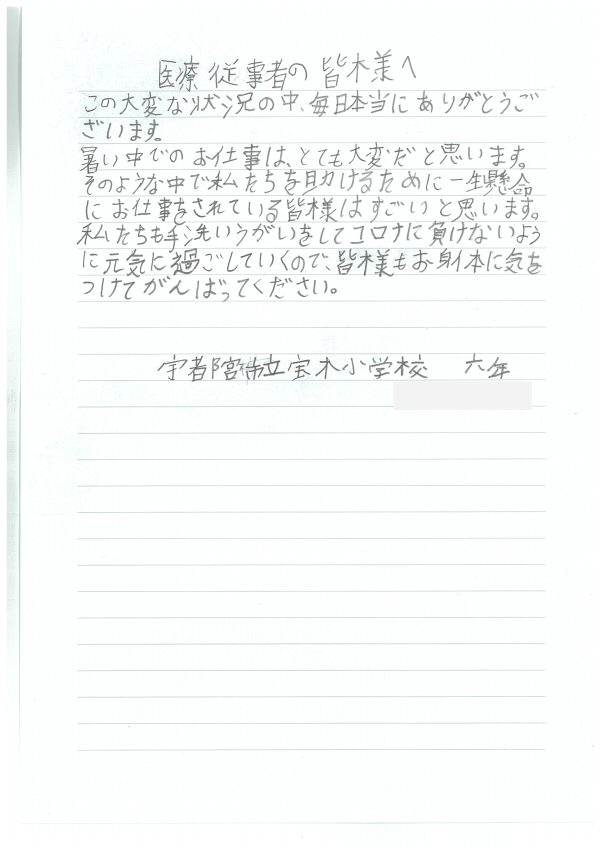 医療従事者の皆様へ
この大変な状況の中、毎日本当にありがとうご
ざいます。
暑い中でのお仕事は、とても大変だと思います。
そのような中で私たちを助けるために一生懸命
にお仕事をされている皆様はすごいと思います。
私たちも手洗いうがいをしてコロナに負けないよう
に元気に過ごしていくので、皆様もお身体に気を
つけてがんばってください。
宇都宮市立宝木小学校　六年